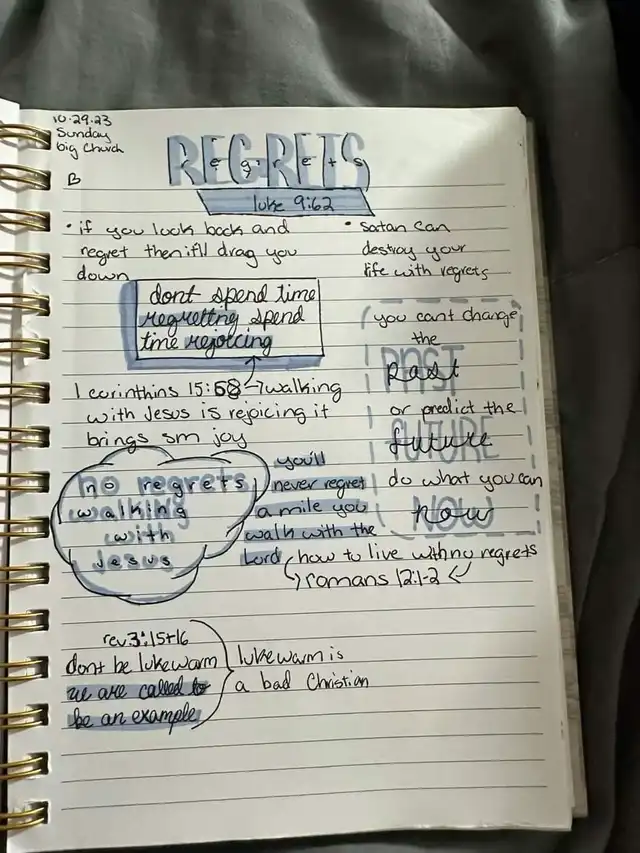 10.29.23
Sunday
big Church
B
REGRETS
regrets
luke 9:62
• if you look back and
regret then it'll drag you
down
• satan can
destroy your
life with regrets
dont spend time
regretting spend
time rejoicing
1 corinthins 15:58 → walking
with Jesus is rejoicing it
brings sm joy
you cant change
the
PAST
past
or predict the
FUTURE
future
do what you can
NOW
now
no regrets
walking
with
Jesus
you'll
never regret
a mile you
walk with the
Lord
how to live with no regrets
→ romans 12:1-2 ←
rev 3:15+16
dont be lukewarm
we are called to
be an example
lukewarm is
a bad Christian